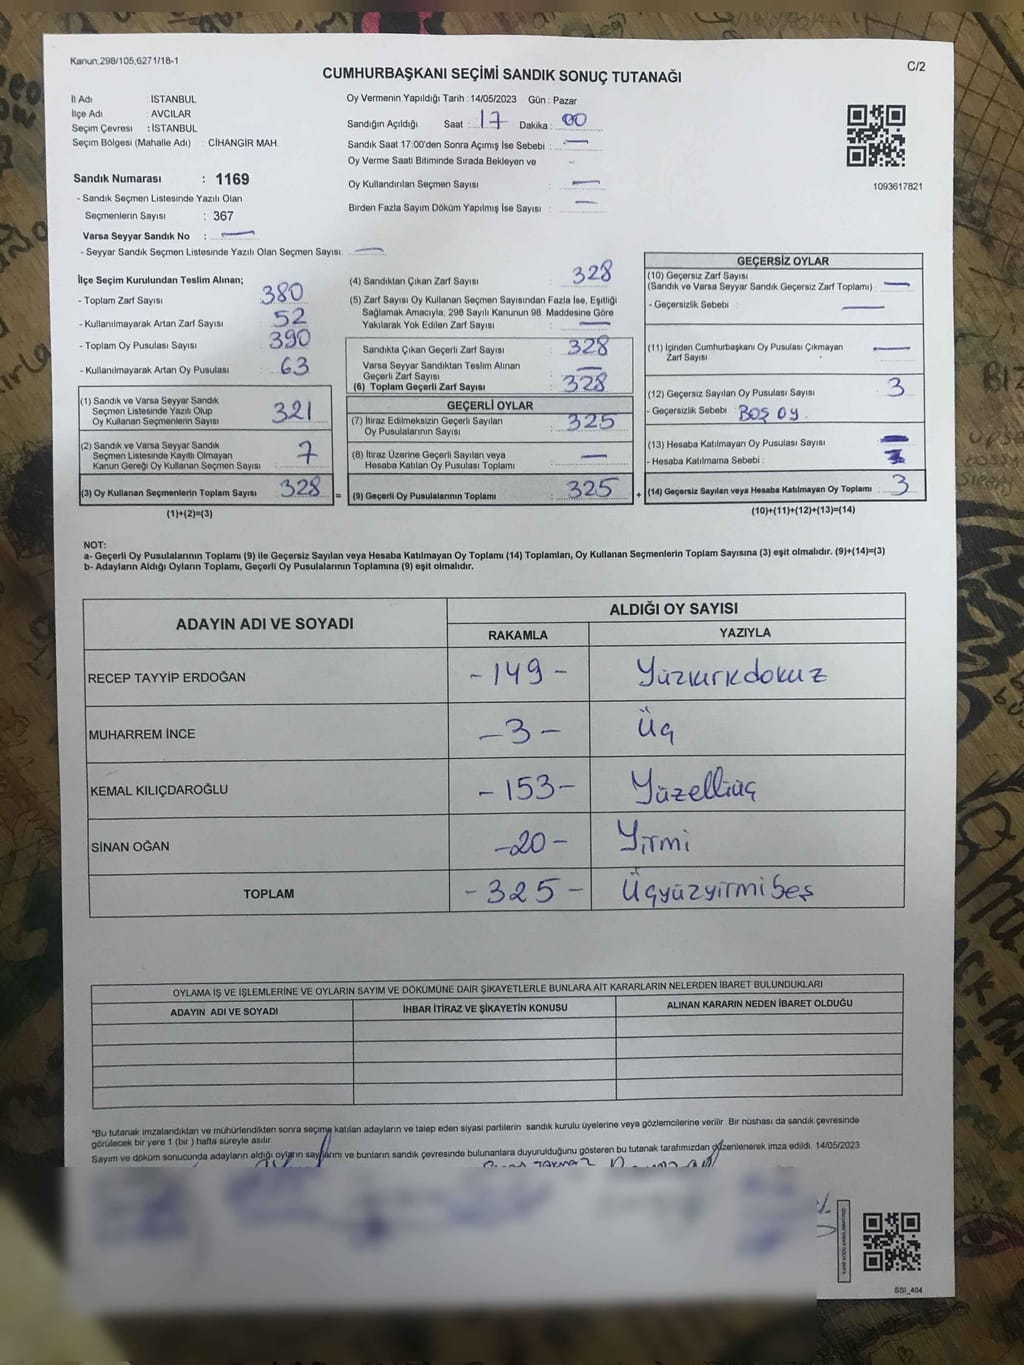 Kanun,298/105,6271/18-1
C/2
CUMHURBAŞKANI SEÇİMİ SANDIK SONUÇ TUTANAĞI
İl Adı : İSTANBUL
İlçe Adı : AVCILAR
Seçim Çevresi : İSTANBUL
Seçim Bölgesi (Mahalle Adı) : CİHANGİR MAH.
Oy Vermenin Yapıldığı Tarih : 14/05/2023 Gün : Pazar
Sandığın Açıldığı Saat : 17 Dakika : 00
Sandık Saat 17:00'den Sonra Açımış İse Sebebi : —
Oy Verme Saati Bitiminde Sırada Bekleyen ve
Oy Kullandırılan Seçmen Sayısı : —
Birden Fazla Sayım Döküm Yapılmış İse Sayısı : —
1093617821
Sandık Numarası : 1169
- Sandık Seçmen Listesinde Yazılı Olan
Seçmenlerin Sayısı : 367
Varsa Seyyar Sandık No : —
- Seyyar Sandık Seçmen Listesinde Yazılı Olan Seçmen Sayısı: —
İlçe Seçim Kurulundan Teslim Alınan;
- Toplam Zarf Sayısı 380
- Kullanılmayarak Artan Zarf Sayısı 52
- Toplam Oy Pusulası Sayısı 390
- Kullanılmayarak Artan Oy Pusulası 63
(1) Sandık ve Varsa Seyyar Sandık
Seçmen Listesinde Yazılı Olup
Oy Kullanan Seçmenlerin Sayısı 321
(2) Sandık ve Varsa Seyyar Sandık
Seçmen Listesinde Kayıtlı Olmayan
Kanun Gereği Oy Kullanan Seçmen Sayısı 7
(3) Oy Kullanan Seçmenlerin Toplam Sayısı 328 =
(1)+(2)=(3)
(4) Sandıktan Çıkan Zarf Sayısı 328
(5) Zarf Sayısı Oy Kullanan Seçmen Sayısından Fazla İse, Eşitliği
Sağlamak Amacıyla; 298 Sayılı Kanunun 98. Maddesine Göre
Yakılarak Yok Edilen Zarf Sayısı —
Sandıkta Çıkan Geçerli Zarf Sayısı 328
Varsa Seyyar Sandıktan Teslim Alınan
Geçerli Zarf Sayısı —
(6) Toplam Geçerli Zarf Sayısı 328
GEÇERLİ OYLAR
(7) İtiraz Edilmeksizin Geçerli Sayılan
Oy Pusulalarının Sayısı 325
(8) İtiraz Üzerine Geçerli Sayılan veya
Hesaba Katılan Oy Pusulası Toplamı —
(9) Geçerli Oy Pusulalarının Toplamı 325 +
GEÇERSİZ OYLAR
(10) Geçersiz Zarf Sayısı
(Sandık ve Varsa Seyyar Sandık Geçersiz Zarf Toplamı) : —
- Geçersizlik Sebebi : —
(11) İçinden Cumhurbaşkanı Oy Pusulası Çıkmayan
Zarf Sayısı —
(12) Geçersiz Sayılan Oy Pusulası Sayısı : 3
- Geçersizlik Sebebi : BOŞ OY
(13) Hesaba Katılmayan Oy Pusulası Sayısı
- Hesaba Katılmama Sebebi :
(14) Geçersiz Sayılan veya Hesaba Katılmayan Oy Toplamı : 3
(10)+(11)+(12)+(13)=(14)
NOT:
a- Geçerli Oy Pusulalarının Toplamı (9) ile Geçersiz Sayılan veya Hesaba Katılmayan Oy Toplamı (14) Toplamları, Oy Kullanan Seçmenlerin Toplam Sayısına (3) eşit olmalıdır. (9)+(14)=(3)
b- Adayların Aldığı Oyların Toplamı, Geçerli Oy Pusulalarının Toplamına (9) eşit olmalıdır.
ADAYIN ADI VE SOYADI
ALDIĞI OY SAYISI
RAKAMLA YAZIYLA
RECEP TAYYİP ERDOĞAN -149- Yüzkırkdokuz
MUHARREM İNCE -3- Üç
KEMAL KILIÇDAROĞLU -153- Yüzelliüç
SİNAN OĞAN -20- Yirmi
TOPLAM -325- Üçyüzyirmibeş
OYLAMA İŞ VE İŞLEMLERİNE VE OYLARIN SAYIM VE DÖKÜMÜNE DAİR ŞİKAYETLERLE BUNLARA AİT KARARLARIN NELERDEN İBARET BULUNDUKLARI
ADAYIN ADI VE SOYADI İHBAR İTİRAZ VE ŞİKAYETİN KONUSU ALINAN KARARIN NEDEN İBARET OLDUĞU
*Bu tutanak imzalandıktan ve mühürlendikten sonra seçime katılan adayların ve talep eden siyasi partilerin sandık kurulu üyelerine veya gözlemcilerine verilir. Bir nüshası da sandık çevresinde
görülecek bir yere 1 (bir) hafta süreyle asılır.
Sayım ve döküm sonucunda adayların aldığı oyların sayılarını ve bunların sandık çevresinde bulunanlara duyurulduğunu gösteren bu tutanak tarafımızdan düzenlenerek imza edildi. 14/05/2023
SSI_404